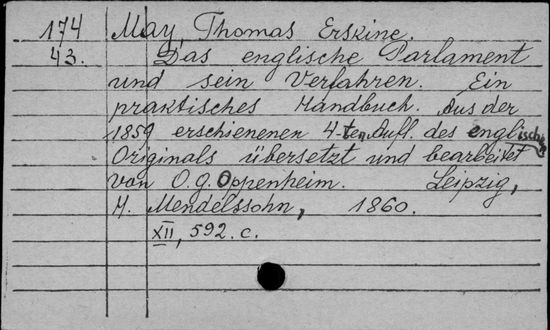 174 May, Thomas Erskine.
43. Das englische Parlament
und sein Verfahren. Ein
praktisches Handbuch. Aus der
1859 erschienenen 4-ten Aufl. des englischen
Originals übersetzt und bearbeitet
von O.G. Oppenheim. Leipzig,
H. Mendelssohn, 1860.
XII, 592. c.